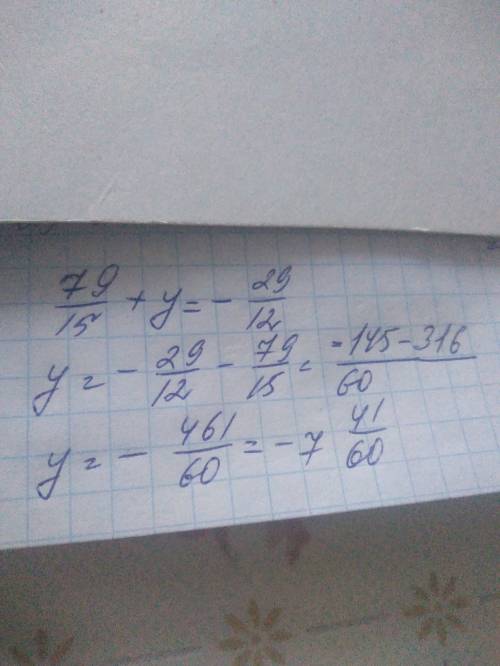 79/15 + y = - 29/12
y = - 29/12 - 79/15 = -145-316/60
y = - 461/60 = -7 41/60